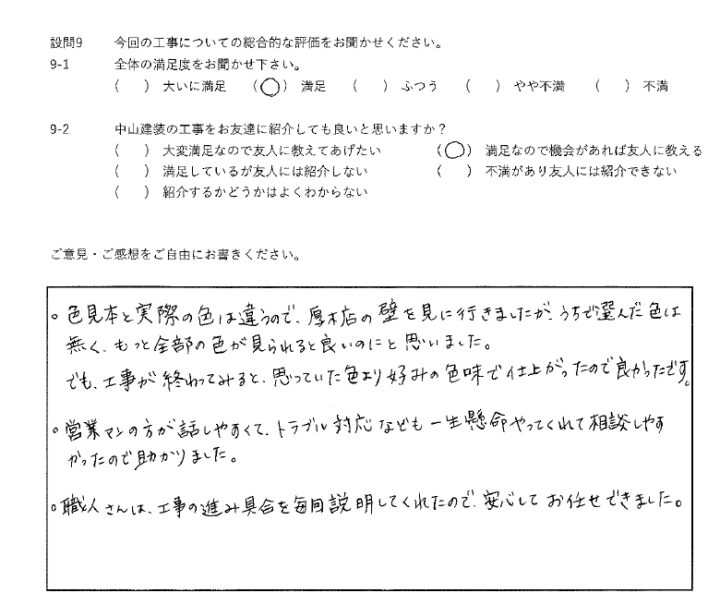 設問9　今回の工事についての総合的な評価をお聞かせください。
9-1　全体の満足度をお聞かせ下さい。
（　）大いに満足　（○）満足　（　）ふつう　（　）やや不満　（　）不満
9-2　中山建装の工事をお友達に紹介しても良いと思いますか？
（　）大変満足なので友人に教えてあげたい　（○）満足なので機会があれば友人に教える
（　）満足しているが友人には紹介しない　（　）不満があり友人には紹介できない
（　）紹介するかどうかはよくわからない
ご意見・ご感想をご自由にお書きください。
。色見本と実際の色は違うので、厚木店の壁を見に行きましたが、うちで選んだ色は
無く、もっと全部の色が見られると良いのにと思いました。
でも、工事が終わってみると、思っていた色より好みの色味で仕上がったので良かったです。
。営業マンの方が話しやすくて、トラブル対応なども一生懸命やってくれて相談しやす
かったので助かりました。
。職人さんは、工事の進み具合を毎回説明してくれたので、安心してお任せできました。